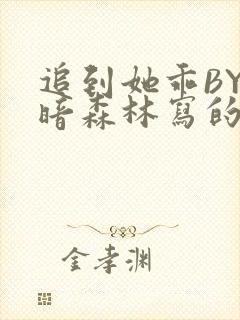 追到她乖BY
暗森林寫的
金孝渊